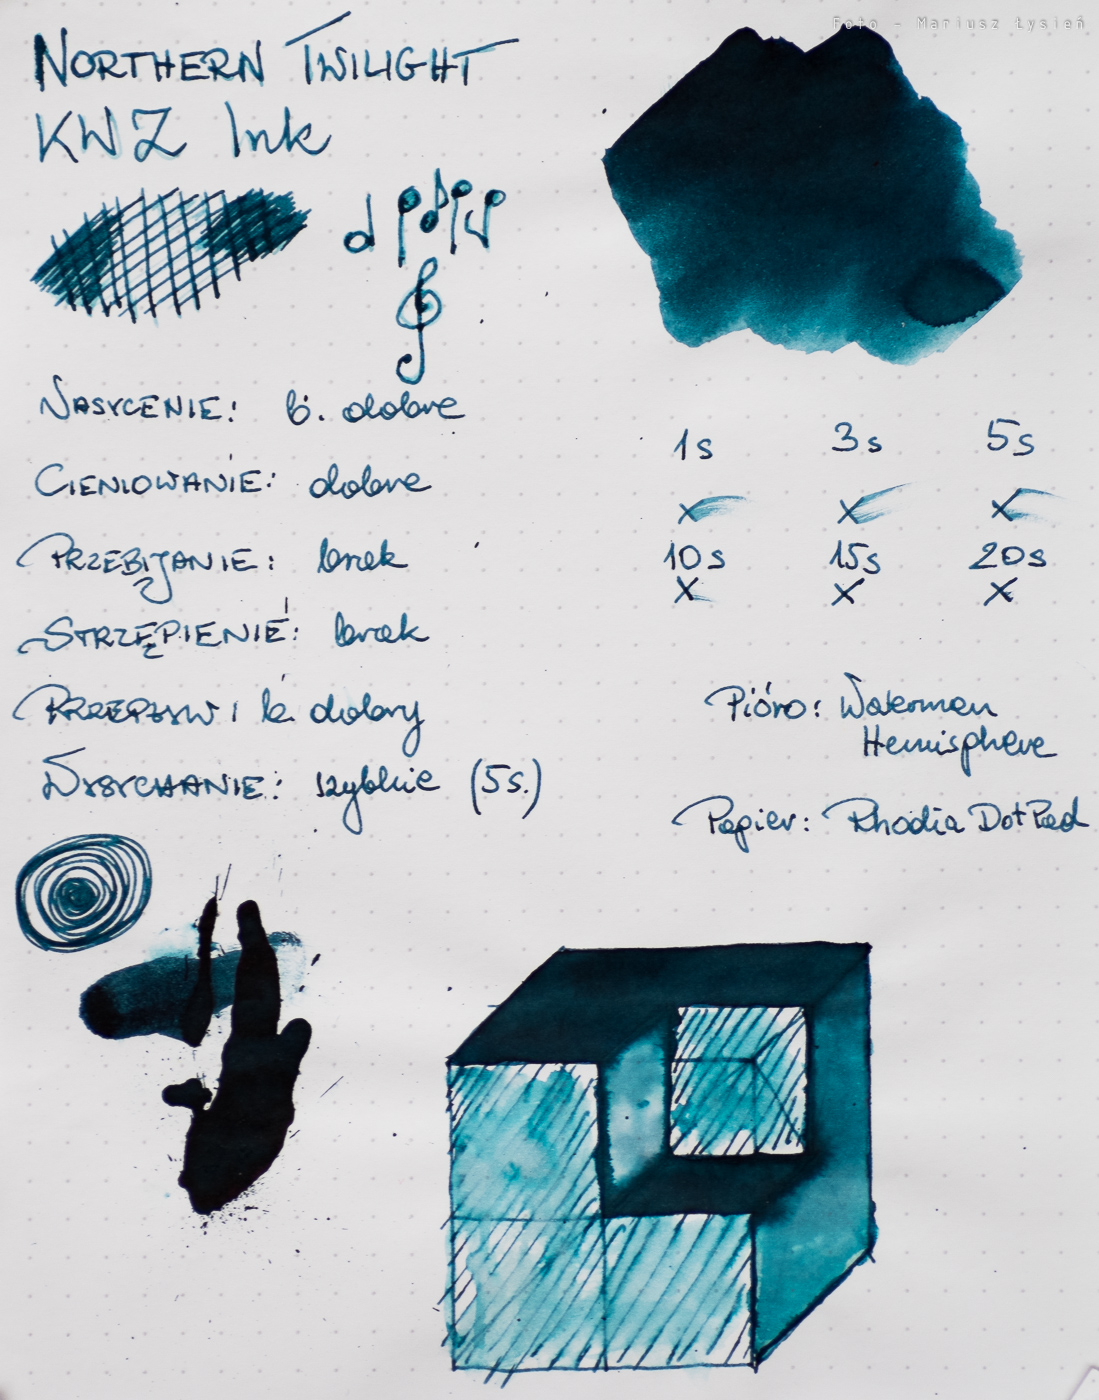 Foto - Mariusz Łysień
NORTHERN TWILIGHT
KWZ Ink
NASYCENIE: b. dobre
CIENIOWANIE: dobre
PRZEBIJANIE: brak
STRZĘPIENIE: brak
PRZEPŁYW: b. dobry
WYSYCHANIE: szybkie (5s.)
1s 3s 5s
x x x
10s 15s 20s
x x x
Pióro: Waterman
Hemisphere
Papier: Rhodia DotPad